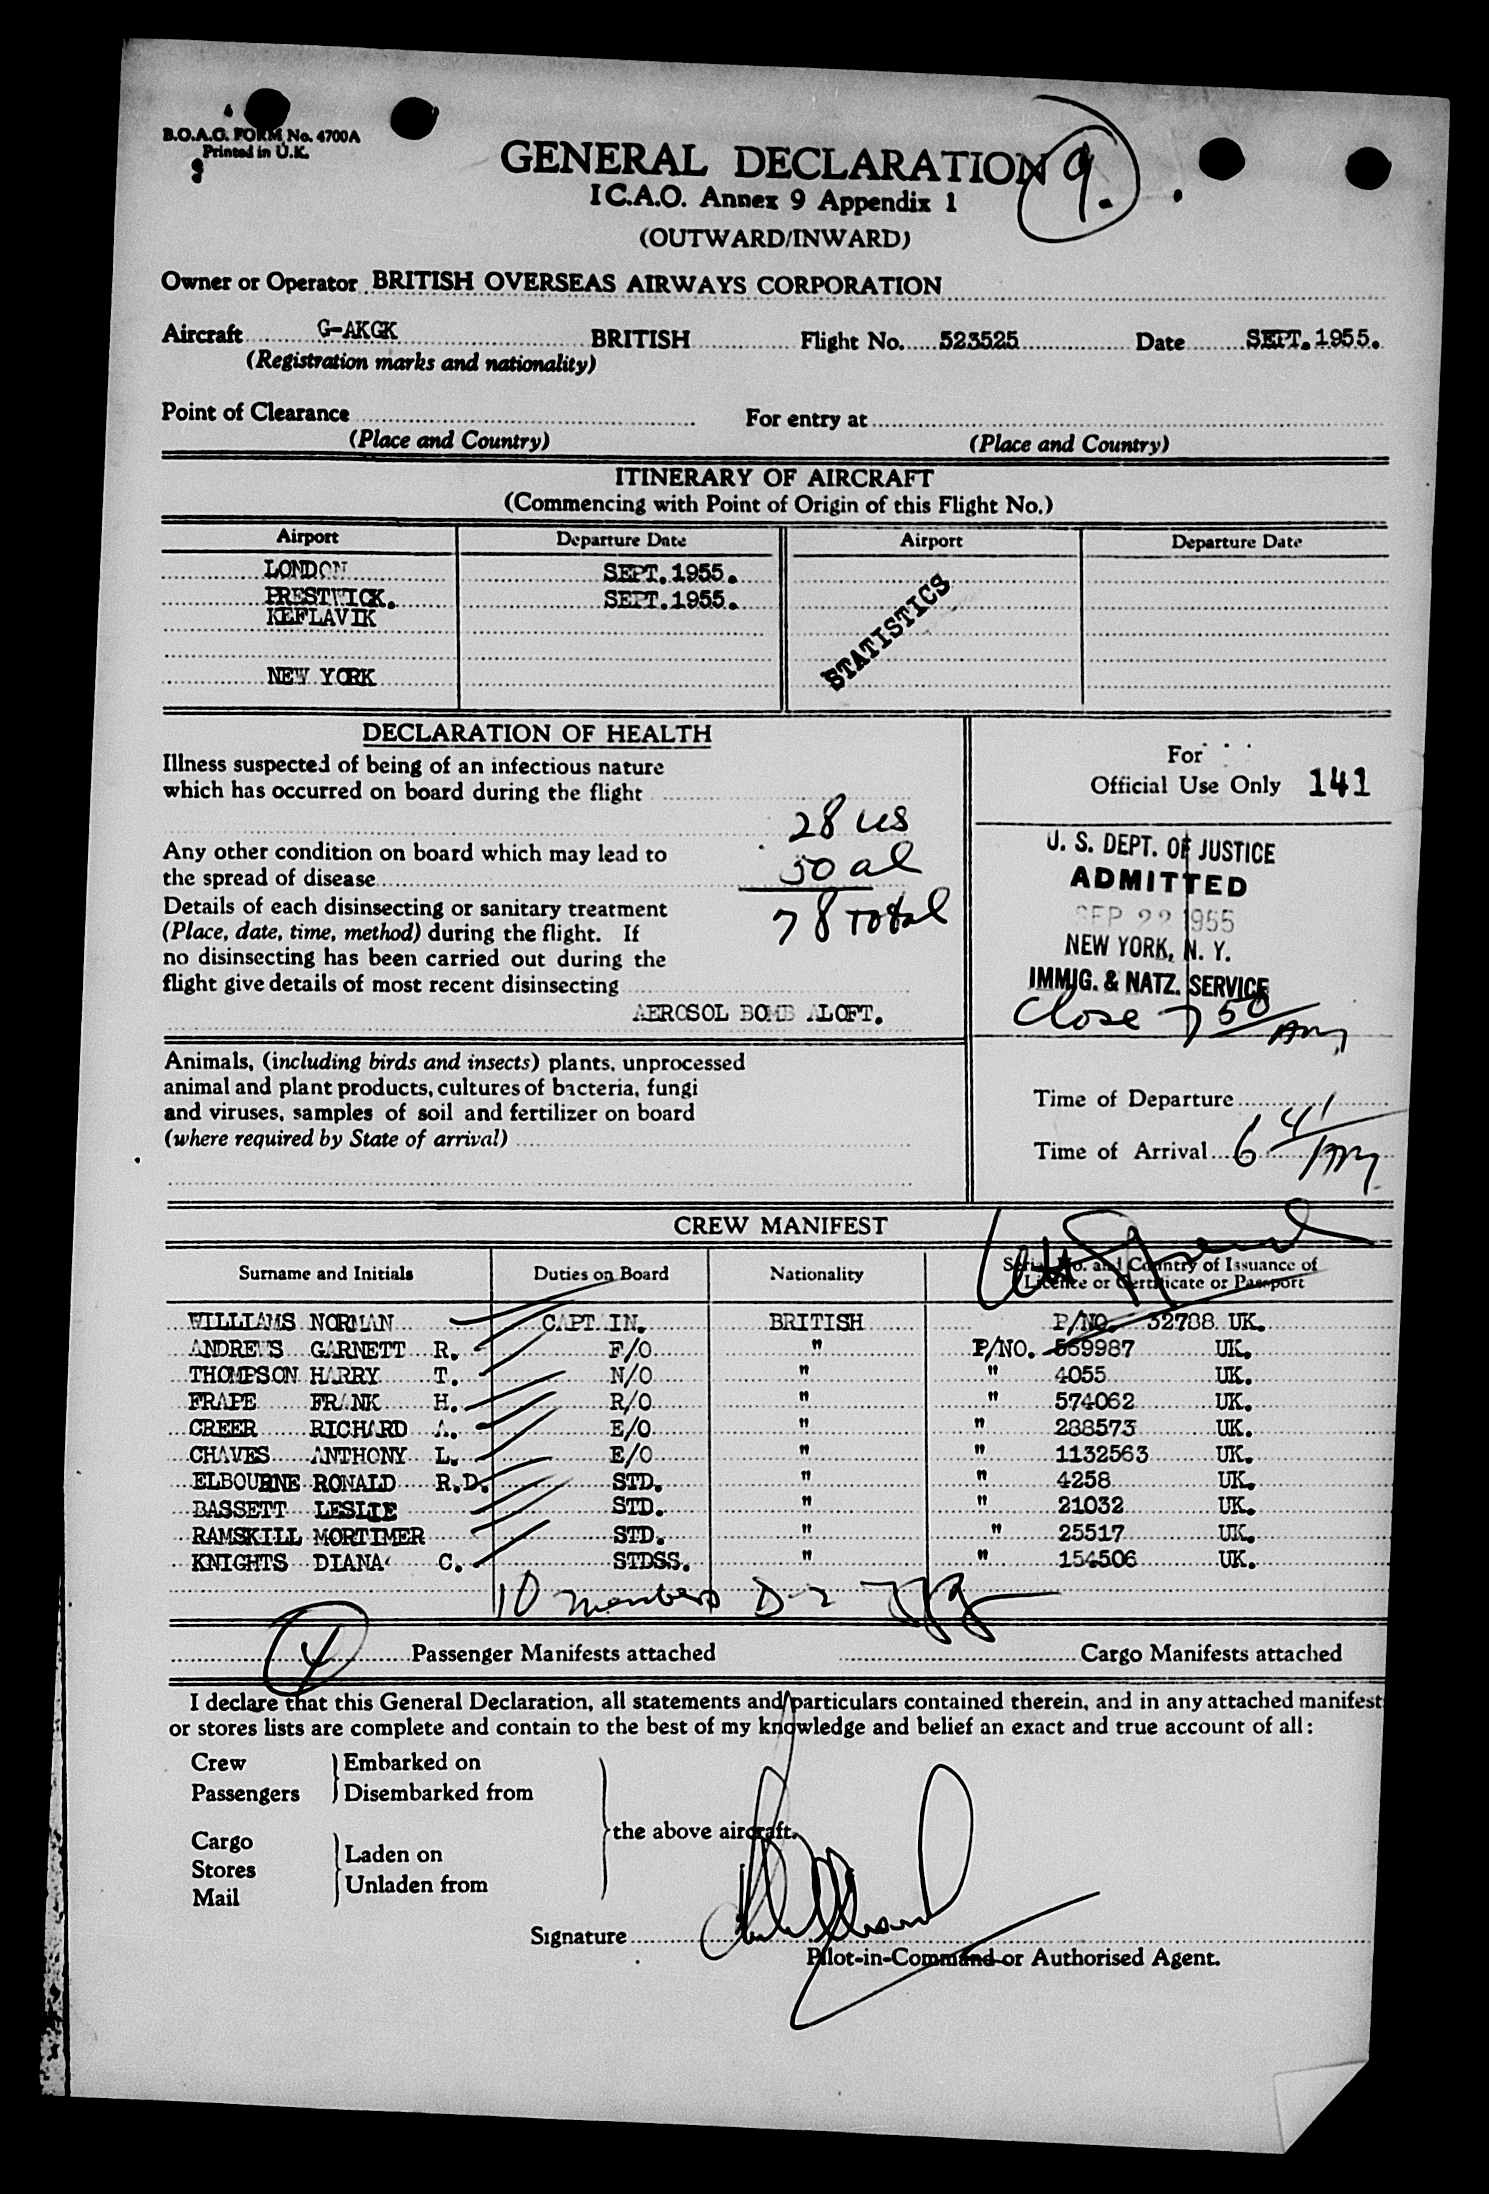 B.O.A.C. FORM No. 4700A
Printed in U.K.
GENERAL DECLARATION
9.
I.C.A.O. Annex 9 Appendix 1
(OUTWARD/INWARD)
Owner or Operator BRITISH OVERSEAS AIRWAYS CORPORATION
Aircraft G-AKGK BRITISH Flight No. 523525 Date SEPT. 1955.
(Registration marks and nationality)
Point of Clearance For entry at
(Place and Country) (Place and Country)
ITINERARY OF AIRCRAFT
(Commencing with Point of Origin of this Flight No.)
Airport Departure Date Airport Departure Date
LONDON SEPT. 1955.
PRESTWICK. SEPT. 1955.
KEFLAVIK
NEW YORK
STATISTICS
DECLARATION OF HEALTH
Illness suspected of being of an infectious nature
which has occurred on board during the flight
28 us
Any other condition on board which may lead to
the spread of disease
50 al
78 total
Details of each disinsecting or sanitary treatment
(Place, date, time, method) during the flight. If
no disinsecting has been carried out during the
flight give details of most recent disinsecting
AEROSOL BOMB ALOFT.
For
Official Use Only 141
U. S. DEPT. OF JUSTICE
ADMITTED
SEP 22 1955
NEW YORK, N. Y.
IMMIG. & NATZ. SERVICE
Close 7 50 AM
Animals, (including birds and insects) plants, unprocessed
animal and plant products, cultures of bacteria, fungi
and viruses, samples of soil and fertilizer on board
(where required by State of arrival)
Time of Departure
Time of Arrival 6 41 AM
CREW MANIFEST
Surname and Initials Duties on Board Nationality Serial No. and Country of Issuance of
Licence or Certificate or Passport
WILLIAMS NORMAN CAPT. IN. BRITISH P/NO. 32788 UK.
ANDREWS GARNETT R. F/O " P/NO. 559987 UK.
THOMPSON HARRY T. N/O " " 4055 UK.
FRAPE FRANK H. R/O " " 574062 UK.
CREER RICHARD A. E/O " " 288573 UK.
CHAVES ANTHONY L. E/O " " 1132563 UK.
ELBOURNE RONALD R.D. STD. " " 4258 UK.
BASSETT LESLIE STD. " " 21032 UK.
RAMSKILL MORTIMER STD. " " 25517 UK.
KNIGHTS DIANA C. STDSS. " " 154506 UK.
10 members D-2
4 Passenger Manifests attached Cargo Manifests attached
I declare that this General Declaration, all statements and particulars contained therein, and in any attached manifest
or stores lists are complete and contain to the best of my knowledge and belief an exact and true account of all:
Crew Embarked on
Passengers Disembarked from
the above aircraft.
Cargo
Stores Laden on
Mail Unladen from
Signature
Pilot-in-Command or Authorised Agent.